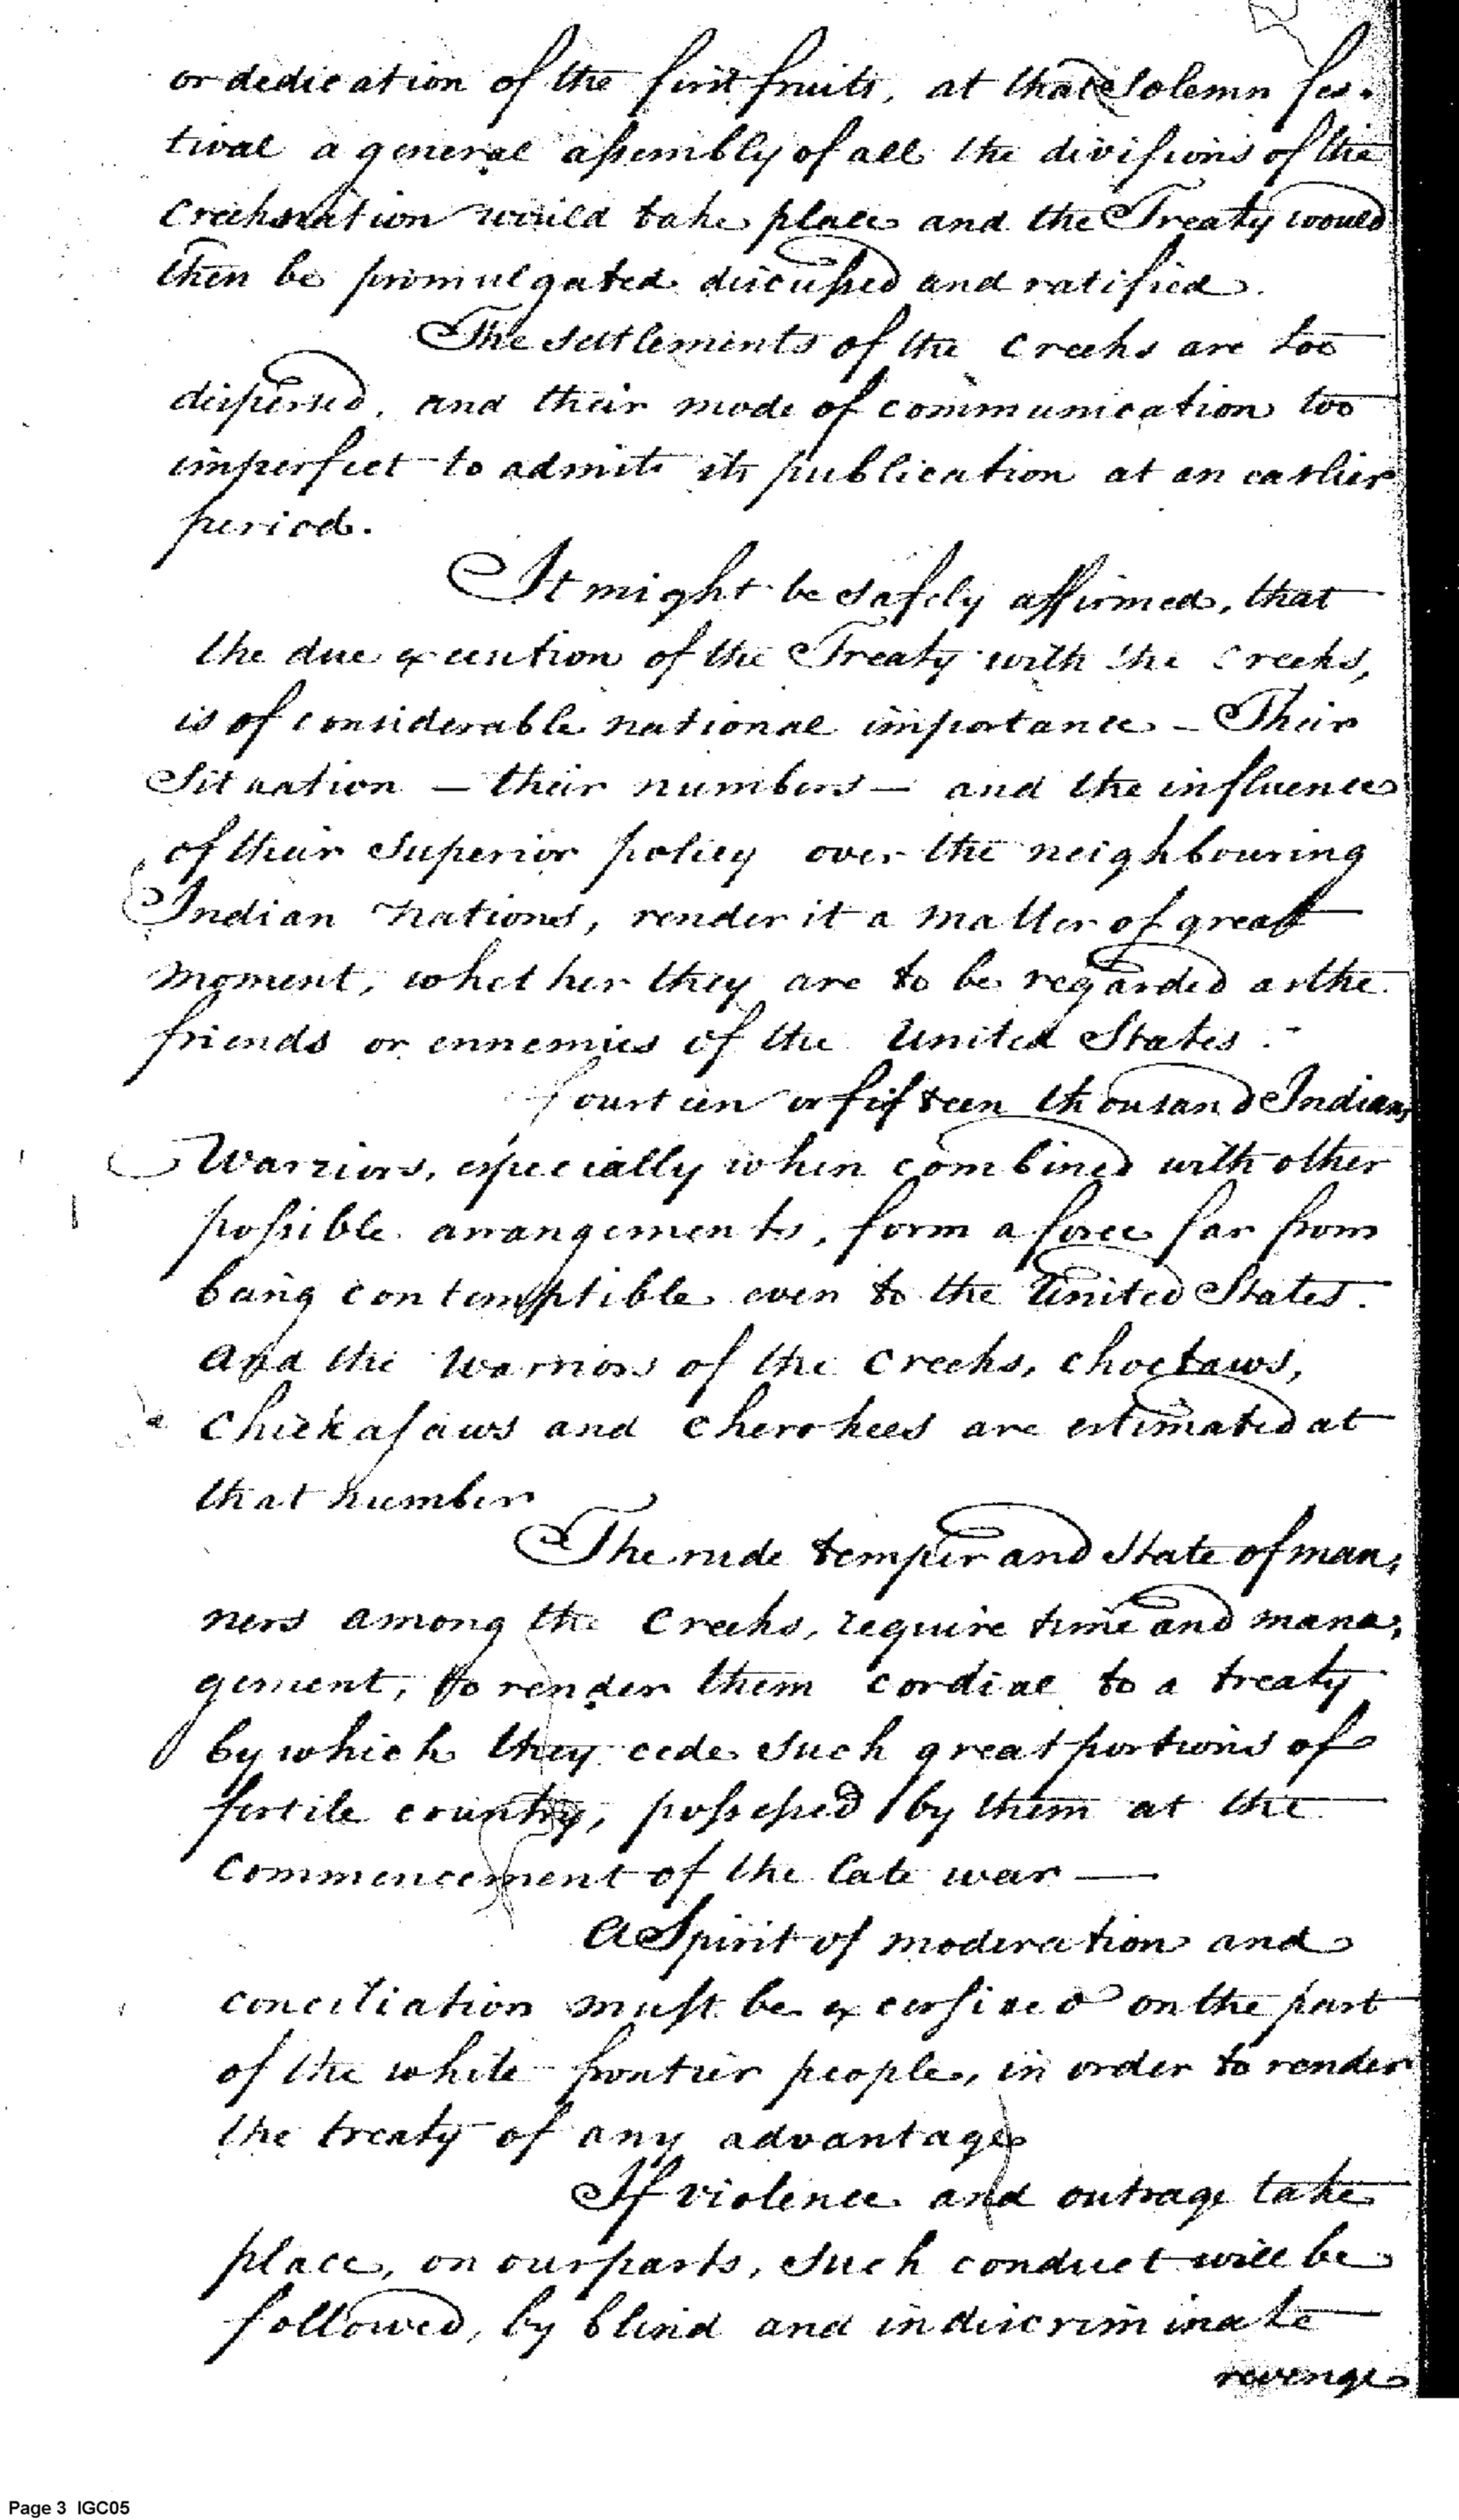 or dedication of the first fruits, at that Solemn fes-
tival a general assembly of all the divisions of the
Creek nation would take place and the Treaty would
then be promulgated discussed and ratified.
The settlements of the Creeks are too
dispersed, and their mode of communication too
imperfect to admit its publication at an earlier
period.
It might be safely affirmed, that
the due execution of the Treaty with the Creeks,
is of considerable national importance - Their
Situation — their numbers — and the influence
of their Superior policy over the neighbouring
Indian Nations, render it a matter of great
moment, whether they are to be regarded as the
friends or ennemies of the United States.
Fourteen or fifteen thousand Indian,
Warriors, especially when combined with other
possible arrangements, form a force far from
being contemptible even to the United States.
And the Warriors of the Creeks, Choctaws,
Chickasaws and Cherokees are estimated at
that number
The rude temper and state of man,
ners among the Creeks, require time and mana,
gement, to render them cordial to a treaty
by which they cede such great portions of
fertile country, possessed by them at the
Commencement of the late war —
A Spirit of moderation and
conciliation must be excersised on the part
of the white frontier people, in order to render
the treaty of any advantage
If violence and outrage take
place, on our parts, such conduct will be
followed, by blind and indiscriminate
revenge
Page 3 IGC05